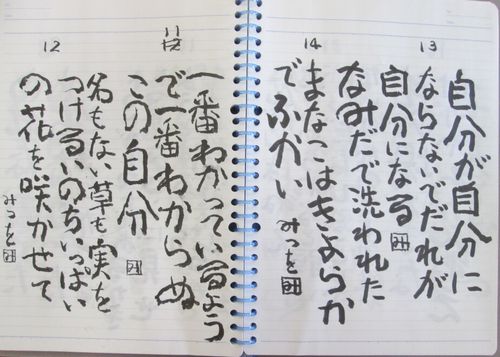 13
自分が自分に
ならないでだれが
自分になる
14
なみだで洗われた
まなこはきよらか
でふかい
みつを
11
一番わかっているよう
で一番わからぬ
この自分
12
名もない草も実を
つけるいのちいっぱい
の花を咲かせて
みつを